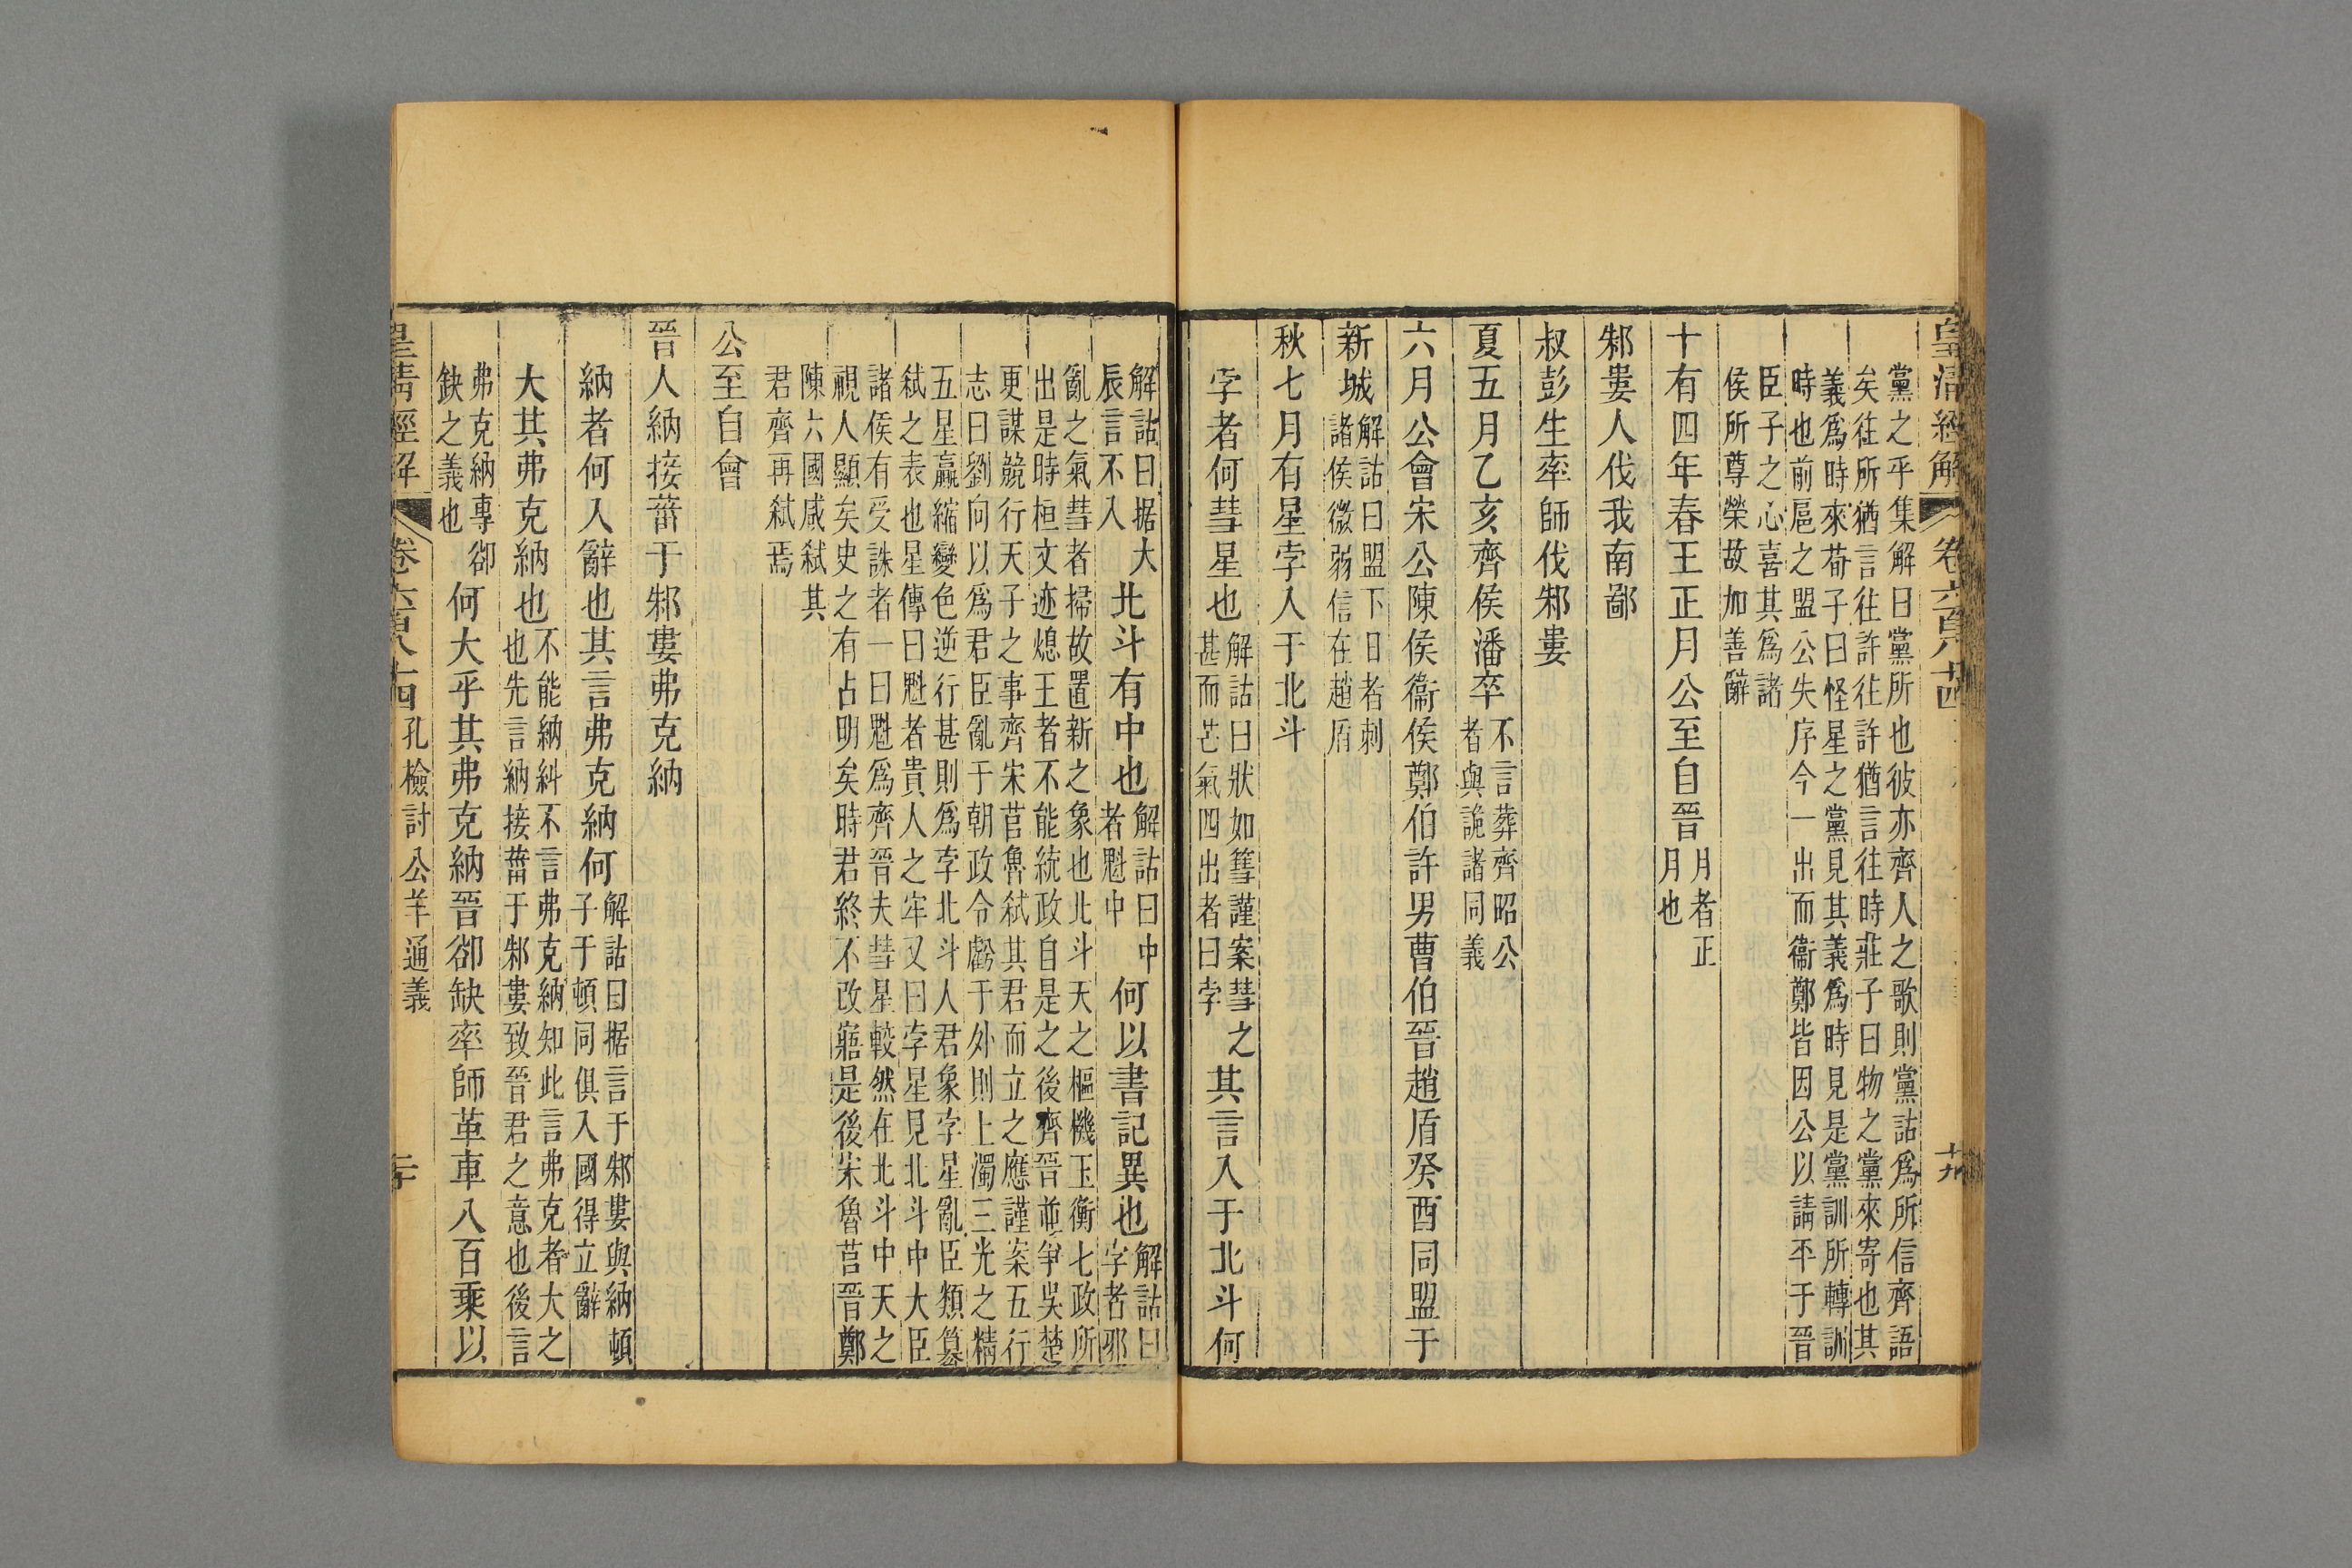 皇清經解 卷六百八十四 十九
黨之乎集解曰黨所也彼亦齊人之歌則黨詁爲所信齊語
矣往所猶言往許往許猶言往時莊子曰物之黨來寄也其
義爲時來荀子曰怪星之黨見其義爲時見是黨訓所轉訓
時也前扈之盟公失序今一出而衞鄭皆因公以請平于晉
臣子之心喜其爲諸
侯所尊榮故加善辭
十有四年春王正月公至自晉月者正
月也
邾婁人伐我南鄙
叔彭生率師伐邾婁
夏五月乙亥齊侯潘卒不言葬齊昭公
者與詭諸同義
六月公會宋公陳侯衞侯鄭伯許男曹伯晉趙盾癸酉同盟于
新城解詁曰盟下日者刺
諸侯微弱信在趙盾
秋七月有星孛入于北斗
孛者何彗星也解詁曰狀如篲謹案彗之
甚而芒氣四出者曰孛
其言入于北斗何
解詁曰据大
辰言不入
北斗有中也解詁曰中
者魁中
何以書記異也解詁曰
孛者邪
亂之氣彗者掃故置新之象也北斗天之樞機玉衡七政所
出是時桓文迹熄王者不能統政自是之後齊晉並爭吳楚
更謀競行天子之事齊宋莒魯弒其君而立之應謹案五行
志曰劉向以爲君臣亂于朝政令虧于外則上濁三光之精
五星贏縮變色逆行甚則爲孛北斗人君象孛星亂臣類篡
弒之表也星傳曰魁者貴人之牢又曰孛星見北斗中大臣
諸侯有受誅者一曰魁爲齊晉夫彗星較然在北斗中天之
視人顯矣史之有占明矣時君終不改寤是後宋魯莒晉鄭
陳六國咸弒其
君齊再弒焉
公至自會
晉人納接菑于邾婁弗克納
納者何入辭也其言弗克納何解詁曰据言于邾婁與納頓
子于頓同俱入國得立辭
大其弗克納也不能納糾不言弗克納知此言弗克者大之
也先言納接菑于邾婁致晉君之意也後言
弗克納專卻
缺之義也
何大乎其弗克納晉卻缺率師革車八百乘以
皇清經解 卷六百八十四 孔檢討公羊通義 二十